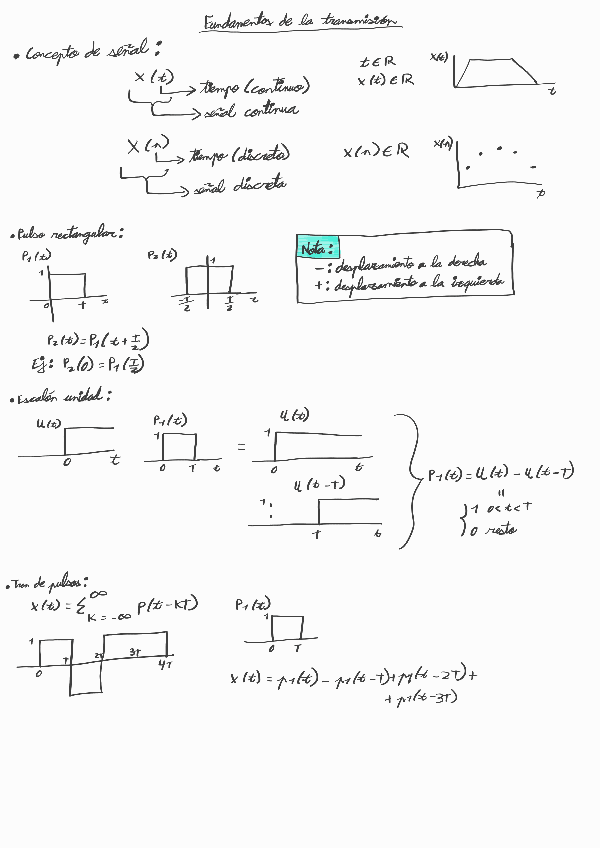 Fundamentos de la transmisión
• Concepto de señal:
x(t)
→ tiempo (continuo)
→ señal continua
t ∈ ℝ
x(t) ∈ ℝ
x(t)
t
x(n)
→ tiempo (discreta)
→ señal discreta
x(n) ∈ ℝ
x(n)
• Pulso rectangular:
P1(t)
1
0 T t
P2(t)
1
-T/2 T/2 t
Nota:
-: desplazamiento a la derecha
+: desplazamiento a la izquierda
P2(t)=P1(t+T/2)
Ej: P2(0)=P1(T/2)
• Escalón unidad:
u(t)
0 t
P1(t)
1
0 T t
=
u(t)
1
0 t
u(t-T)
1
T t
P1(t)=u(t)-u(t-T)
=
{1 0<t<T
0 resto
• Tren de pulsos:
x(t)=Σ∞K=-∞ p(t-KT)
1
0 T 2T 3T 4T
P1(t)
1
0 T
x(t)=p1(t)-p1(t-T)+p1(t-2T)+
+p1(t-3T)